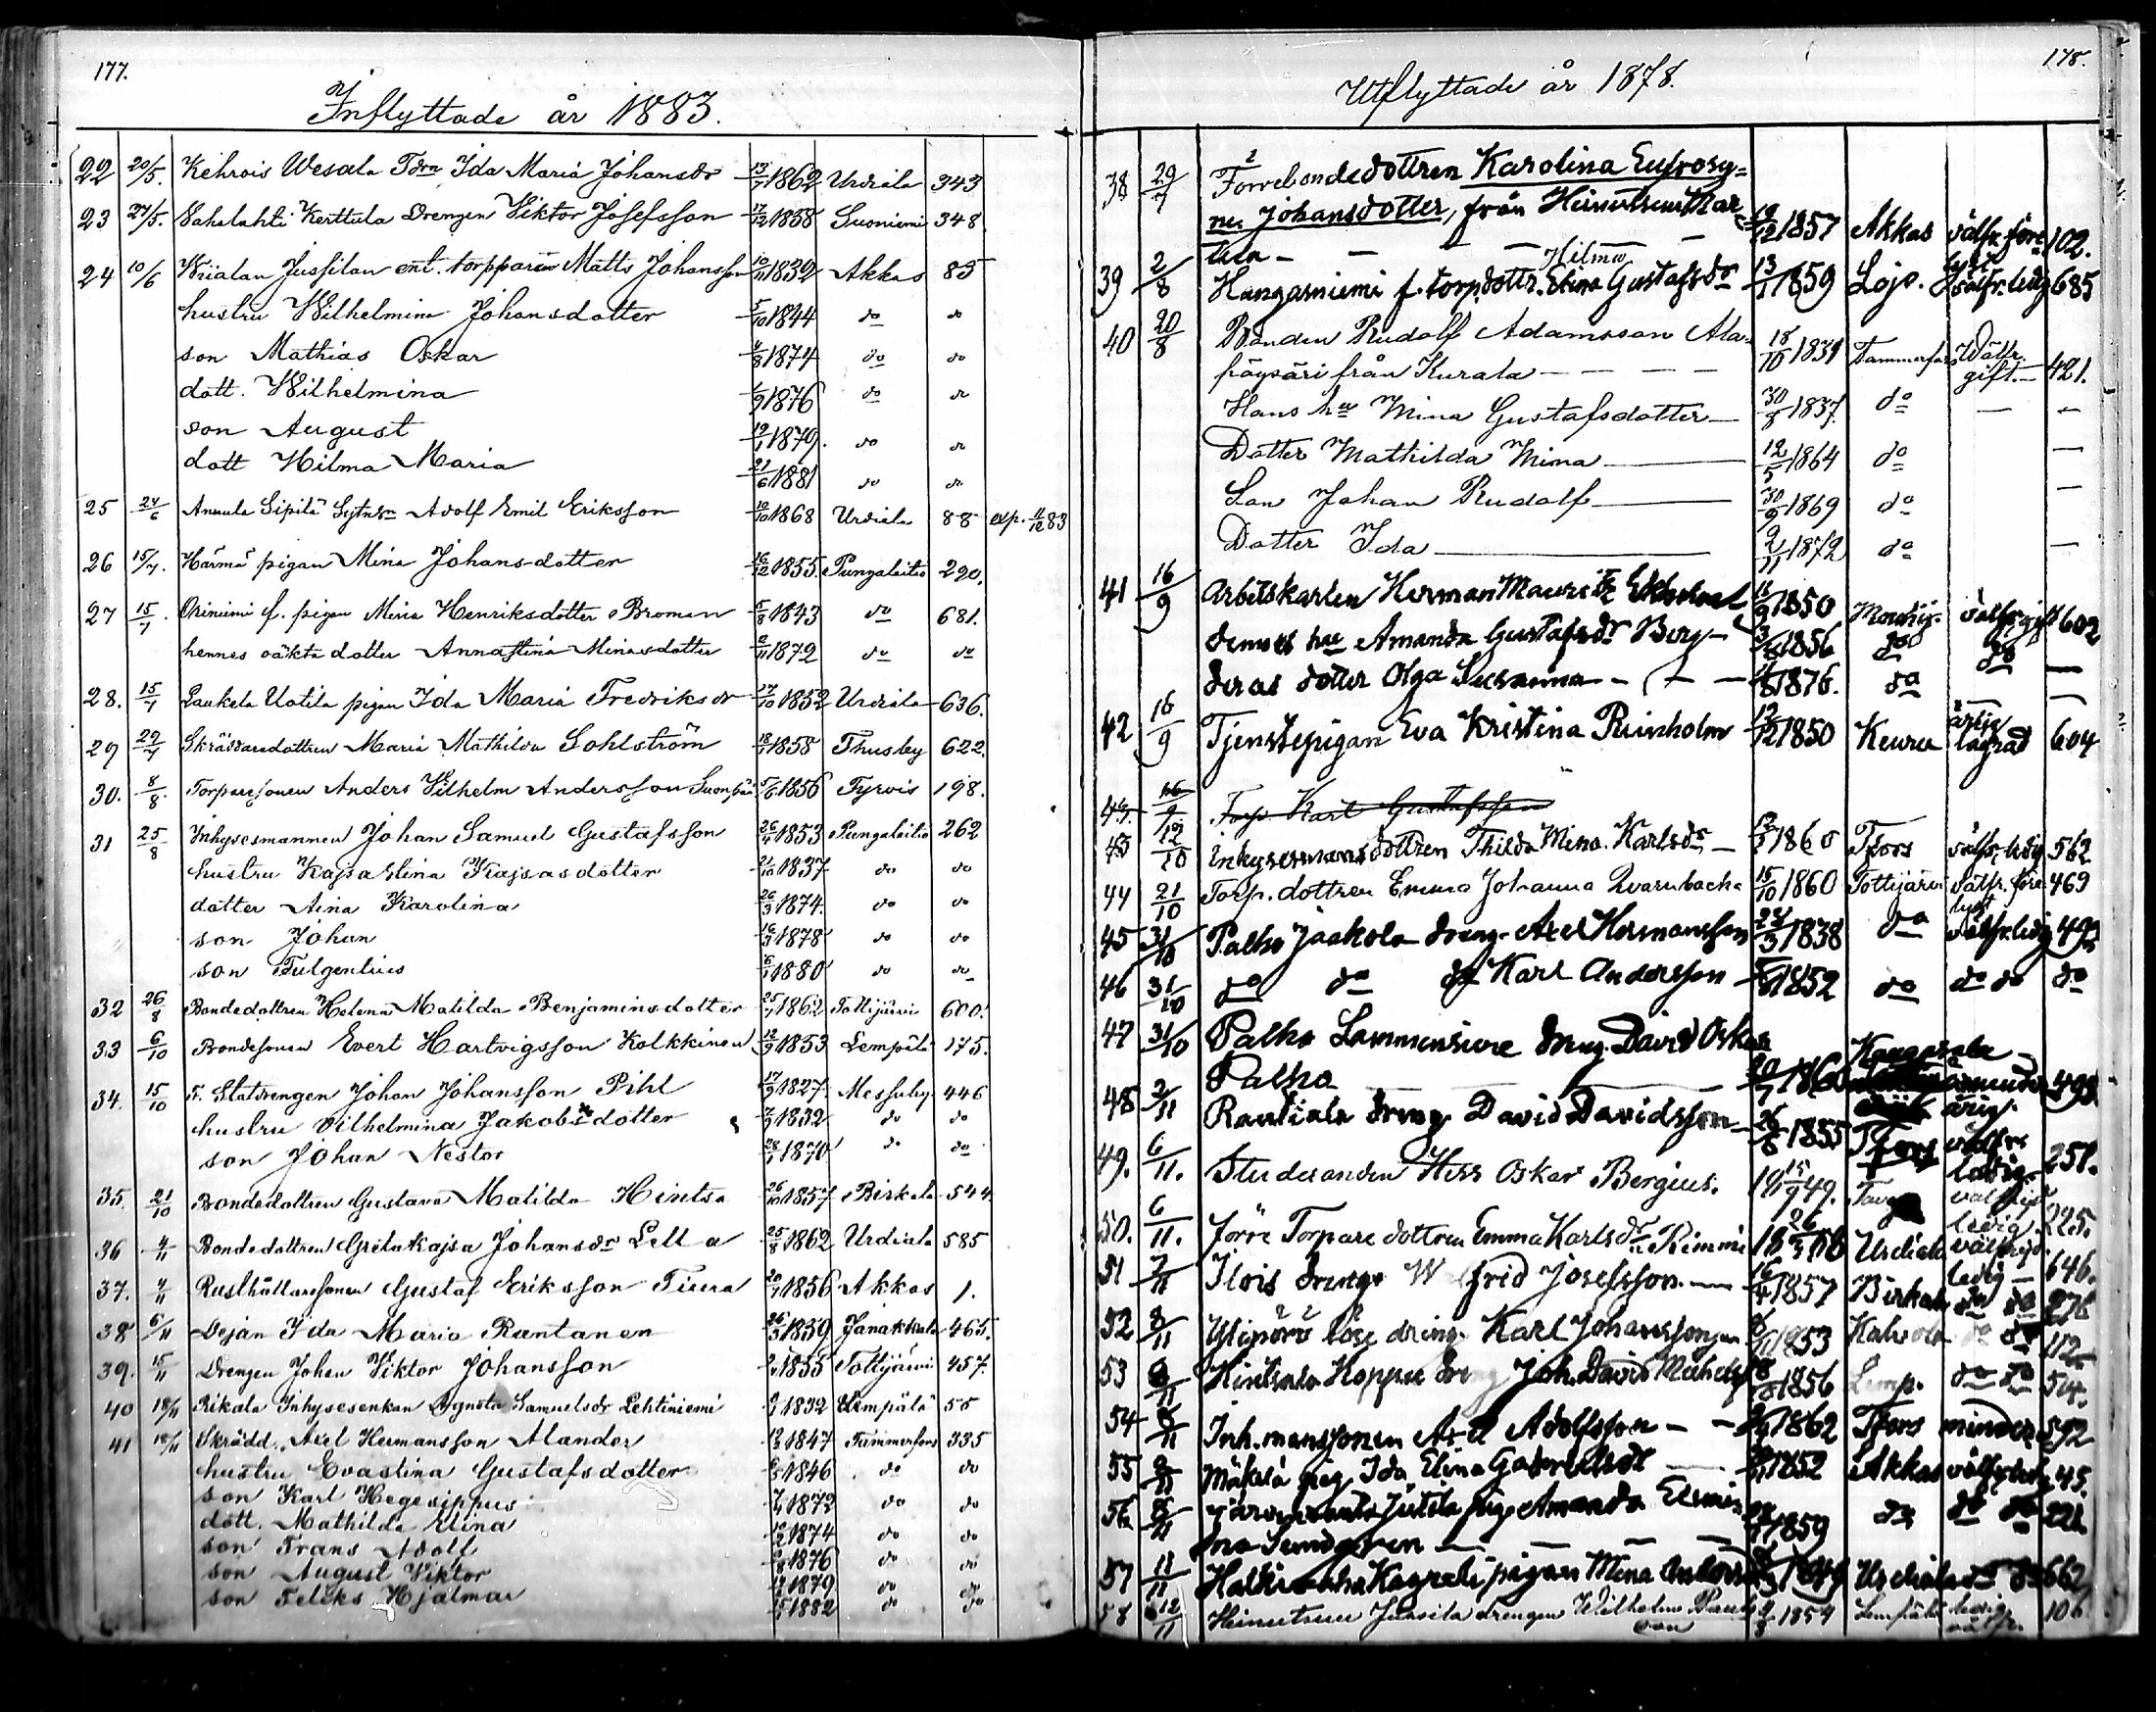 177.
Inflyttade år 1883.
22 20/5. Kehrois Wesala Tdrn Ida Maria Johansdr 13/7 1862 Urdiala 343
23 27/5. Sahalahti Kerttula Drengen Viktor Josefsson 17/12 1858 Suoniemi 348
24 10/6 Wialan Jussilan ent. torpparin Matts Johansson 10/11 1832 Akkas 85
hustru Wilhelmina Johansdotter 5/10 1844 do do
son Mathias Oskar 4/8 1874 do do
dott. Wilhelmina 1/9 1876 do do
son August 19/1 1879. do do
dott Hilma Maria 21/6 1881 do do
25 24/6 Annula Sipilä Adolf Emil Eriksson 10/10 1868 Urdiala 88 exp. 11/12 83
26 15/7. Härmä pigan Mina Johansdotter 16/12 1855. Pungalaitio 290.
27 15/7. Oriniemi f. pigan Mina Henriksdotter Broman 5/8 1843 do 681.
hennes oäkta dotter Annastina Minasdotter 2/11 1872 do do
28. 15/7 Laukela Uotila pigan Ida Maria Fredriksdr 17/10 1852 Urdiala 636.
29 29/7 Skräddaredottren Maria Mathilda Sohlström 18/1 1858 Thusby 622.
30. 8/8. Torparesonen Anders Vilhelm Andersson 5/6 1856 Tyrvis 198.
31 25/8 Inhysesmannen Johan Samuel Gustafsson 26/4 1853 Pungalaitio 262
hustru Kajsastina Kajsasdotter 21/10 1837 do do
dotter Aina Karolina 26/3 1874. do do
son Johan 16/3 1878 do do
son Fulgentius 6/1 1880 do do
32 26/8 Bondedottren Helena Matilda Benjaminsdotter 25/7 1862 Tottijärvi 600.
33 6/10 Bondesonen Evert Hartvigsson Kolkkinen 12/9 1853 Lempälä 175.
34. 15/10 F. Statdrengen Johan Johansson Pihl 17/9 1827. Messuby 446
hustru Vilhelmina Jakobsdotter 7/3 1832 do do
son Johan Nestor 28/1 1870 do do
35. 21/10 Bondedottren Gustava Matilda Hintsa 26/10 1857 Birkala 544
36 4/11 Bondedottren Gretakajsa Johansdr Lella 25/8 1862 Urdiala 585
37. 4/11 Rusthållaresonen Gustaf Eriksson Tiura 20/7 1856 Akkas 1.
38 6/11 Dejan Ida Maria Rantanen 26/3 1859 Janakkala 465.
39. 15/11 Drengen Johan Viktor Johansson 1855 Tottijärvi 457.
40 18/11 Rikala Inhysesenkan Agneta Samuelsdr Lehtiniemi 1832 Lempälä 55
41 18/11 Skrädd. Axel Hermansson Alander 1847 Tammerfors 335
hustru Evastina Gustafsdotter 1846 do do
son Karl Hegesippus 1873 do do
dott. Mathilda Elina 1874 do do
son Frans Adolf 1876 do do
son August Viktor 1879 do do
son Feliks Hjalmar 1882 do do
178.
Utflyttade år 1878.
38 29/7 Förre bondedottren Karolina Eufrosy=
ne Johansdotter, från Heinutsuu Mar
tila 18/12 1857 Akkas välfr. före 102.
39 2/8 Hangasniemi f. torp. dottr. Elina Hilma Gustafsdr 13/1 1859 Lojo. välfr. ledig 685
40 20/8 Bonden Rudolf Adamsson Ala=
pöysäri från Kurala 18/10 1831 Tammerfors Välfr. gift. 421.
Hans hu Mina Gustafsdotter 30/8 1837. do
Dotter Mathilda Mina 12/5 1864 do
Son Johan Rudolf 30/9 1869 do
Dotter Ida 2/11 1872 do
41 16/9 Arbetskarlen Herman Mauritz Ekholm 11/9 1850 välfr. gift 602
dennes hu Amanda Gustafsdr Berg 3/8 1856 do do
deras dotter Olga Susanna 1876. do
42 16/9 Tjenstepigan Eva Kristina Reinholm 12/12 1850 Keuru ärlig lagrad 604
43. 16/9 Torp Karl Gustafsson
43 12/10 Inhysesmansdottren Thilda Mina Karlsdr 1860 Tfors välfr. ledig 562
44 21/10 Torp. dottren Emma Johanna Qvarnbacka 15/10 1860 Tottijärvi välfr. före 469
45 31/10 Palho Jaakola dreng. Axel Hermansson 1838 do välfr. ledig 492
46 31/10 do do do Karl Andersson 1852 do do do do
47 31/10 Palho Lammensivu dreng. David Oskar
Palho 1860 Kangasala 498.
48 2/11 Rautiala dreng David Davidsson 26/8 1855 Tfors välfr. ledig 251.
49. 6/11. Studeranden Herr Oskar Bergius. 18 15/9 49. välfrejd ledig 225.
50. 6/11. Förre Torparedottren Emma Karlsdr Rimmi Urdiala välfrejd. ledig 646.
51 7/11 Ilois drenge Walfrid Josefsson 16/4 1857 Birkala do do 276
52 8/11 Ylipöro löse dreng. Karl Johansson 1853 Kalvola do do 112
53 8/11 Hinttala Hoppu dreng Joh. David 1856 Lemp. do do 54.
54 8/11 Inh. mansonen Axel Adolfsson 1862 Tfors minder 592
55 8/11 Mäkelä pig Ida Elina Gabrielsdr 1852 Akkas välfr. led. 45.
56 8/11 Jutila pig. Amanda 1859 do do do 221
57 11/11 pigan Mina Urdiala do do 662
58 12/11 Heinutsuu Jussila drengen Wilhelm 1854 Lempälä ledig välfr. 106